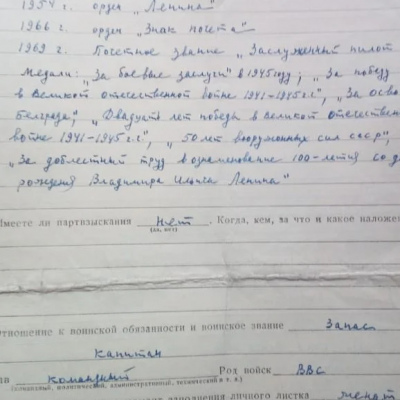 1954 г. орден „Ленина"
1966 г. орден „Знак почета"
1969 г. Почетное звание „Заслуженный пилот
Медали: „За боевые заслуги" в 1945 году, „За победу
в Великой отечественной войне 1941-1945 г.г.", „За осво
Белграда", „Двадцать лет победы в Великой отечествен
войне 1941-1945 г.г.", „50 лет вооруженных сил СССР",
„За доблестный труд в ознаменование 100-летия со дн
рождения Владимира Ильича Ленина"
Имеете ли партвзыскания нет . Когда, кем, за что и какое наложен
(да, нет)
Отношение к воинской обязанности и воинское звание Запас
капитан
командный Род войск ВВС
(командный, политический, административный, технический и т. д.)
заполнения личного листка женат